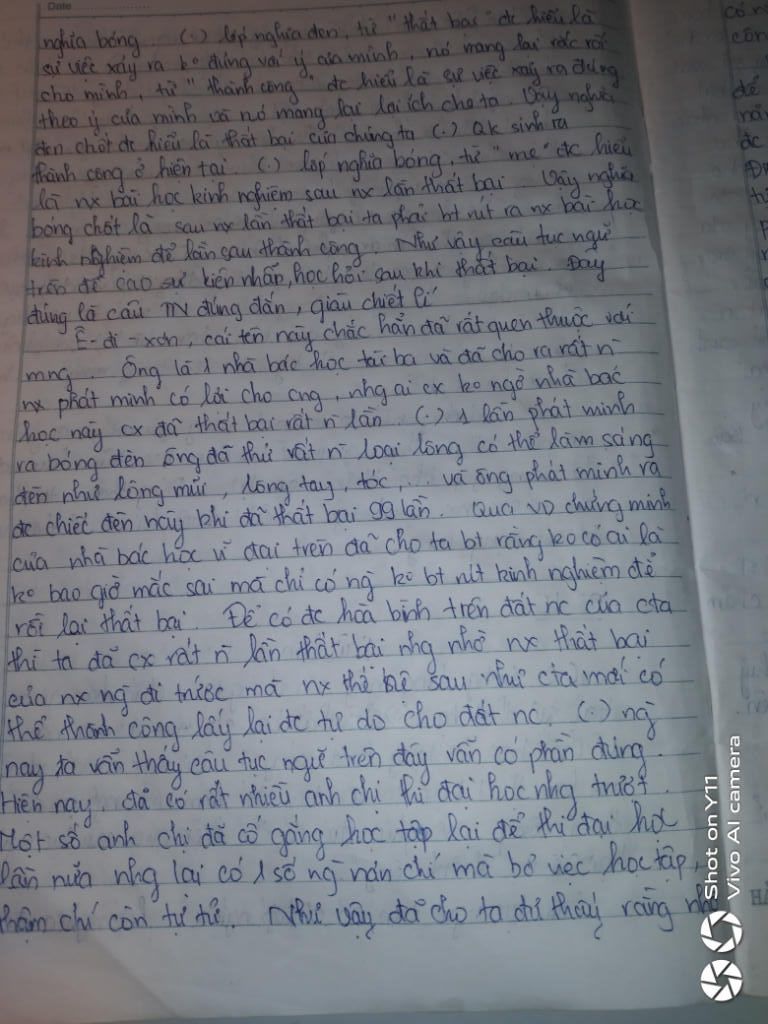 Date
nghĩa bóng. (.) lớp nghĩa đen, từ "thất bại" đc hiểu là
sự việc xảy ra ko đúng với ý của mình, nó mang lại rắc rối
cho mình, từ "thành công" đc hiểu là sự việc xảy ra đúng
theo ý của mình và nó mang lại lợi ích cho ta. Vậy nghĩa
đen chốt đc hiểu là thất bại của chúng ta (.) QK sinh ra
thành công ở hiện tại. (.) lớp nghĩa bóng, từ "mẹ" đc hiểu
là nx bài học kinh nghiệm sau nx lần thất bại. Vậy nghĩa
bóng chốt là sau nx lần thất bại ta phải bt rút ra nx bài học
kinh nghiệm để lần sau thành công. Như vậy câu tục ngữ
trên đề cao sự kiên nhẫn, học hỏi sau khi thất bại. Đây
đúng là câu TN đúng đắn, giàu chiết lí
Ê-đi-xơn, cái tên này chắc hẳn đã rất quen thuộc với
mng. Ông là 1 nhà bác học tài ba và đã cho ra rất n̄
nx phát minh có lợi cho cng, nhg ai cx ko ngờ nhà bác
học này cx đã thất bại rất n̄ lần. (.) 1 lần phát minh
ra bóng đèn ông đã thử rất n̄ loại lông có thể làm sáng
đèn như lông mũi, lông tay, tóc,... và ông phát minh ra
đc chiếc đèn này khi đã thất bại 99 lần. Qua VD chứng minh
của nhà bác học vĩ đại trên đã cho ta bt rằng ko có ai là
ko bao giờ mắc sai mà chỉ có ng̀ ko bt rút kinh nghiệm để
rồi lại thất bại. Để có đc hòa bình trên đất nc của cta
thì ta đã cx rất n̄ lần thất bại nhg nhờ nx thất bại
của nx ng̀ đi trước mà nx thế hệ sau như cta mới có
thể thành công lấy lại đc tự do cho đất nc. (.) ng̀
nay ta vẫn thấy câu tục ngữ trên đây vẫn có phần đúng.
Hiện nay, đã có rất nhiều anh chị thi đại học nhg trượt.
Một số anh chị đã cố gắng học tập lại để thi đại học
lần nữa nhg lại có 1 số ng̀ nản chí mà bỏ việc học tập,
thậm chí còn tự tử. Như vậy đã cho ta thấy rằng
Shot on Y11
Vivo AI camera